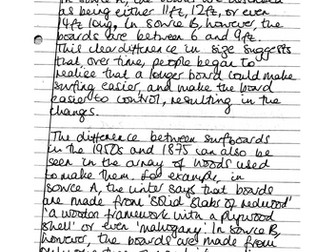 as being either 11ft, 12ft, or even
14ft long. In source B, however, the
boards are between 6 and 9ft.
This clear difference in size suggests
that, over time, people began to
realise that a longer board could make
surfing easier, and make the board
easier to control, resulting in the
changes.
The difference between surfboards
in the 1950s and 1875 can also be
seen in the array of woods used
to make them. For example, in
source A, the writer says that boards
are made from 'solid slabs of redwood'
'a wooden framework with a plywood
shell' or even 'mahogany'. In source B,
however, the boards are made from